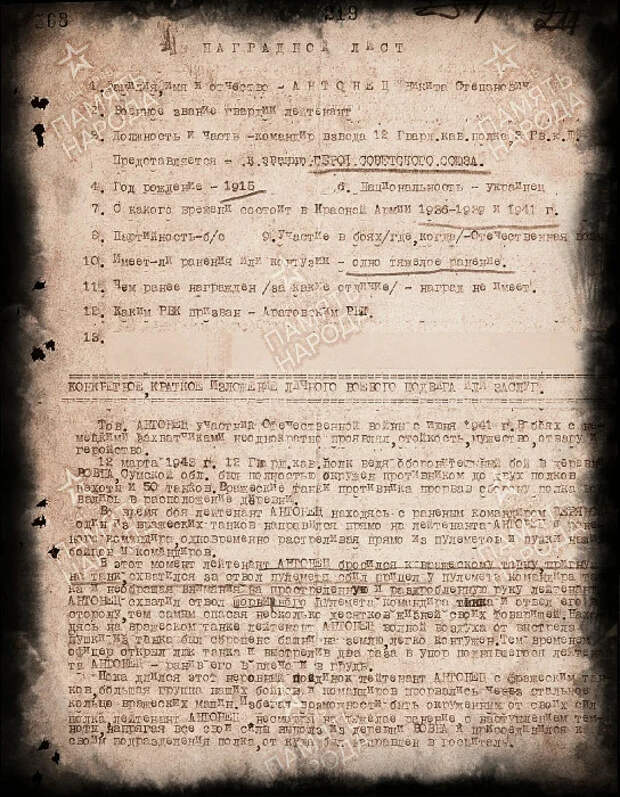 268
219
НАГРАДНОЙ ЛИСТ
1. Фамилия, имя и отчество - АНТОНЕЦ Никита Степанович
2. Военное звание гвардии лейтенант
3. Должность и часть - командир взвода 12 Гвард.кав.полка 3 Гв.к.
Представляется - к званию ГЕРОЯ СОВЕТСКОГО СОЮЗА.
4. Год рождение - 1915 6. Национальность - украинец
7. С какого времени состоит в Красной Армии 1936-1939 и 1941 г.
8. Партийность-б/п 9. Участие в боях/где,когда/-Отечественная
10. Имеет-ли ранения или контузии - одно тяжелое ранение.
11. Чем ранее награжден /за какие отличие/ - наград не имеет.
12. Каким РВК призван - Аратовским РВК.
13.
КОНКРЕТНОЕ,КРАТКОЕ ИЗЛОЖЕНИЕ ЛИЧНОГО БОЕВОГО ПОДВИГА ИЛИ ЗАСЛУГ.
Тов. АНТОНЕЦ участник Отечественной войны с июня 1941 г. В боях с
мецкими захватчиками неоднократно проявлял,стойкость,мужество,отвагу и
геройство.
12 марта 1943 г. 12 Гвард.кав.полк ведя оборонительный бой в
ВОДНА,Сумской обл. был полностью окружен противником до двух полков
пехоты и 50 танков. Вражеские танки противника прорвав
вались в расположение деревни.
Во время боя лейтенант АНТОНЕЦ находясь с раненым командиром
один из вражеских танков направился прямо на лейтенанта АНТОНЕЦ и
ного командира,одновременно расстреливая прямо из пулеметов и пушки наших
бойцов и командиров.
В этот момент лейтенант АНТОНЕЦ бросился к вражескому танку,
на танк,схватился за ствол пулемета сбил прицел у пулемета командира
ка и необращая внимания на простреленную и раздробленную руку лейтенант
АНТОНЕЦ схватил ствол пулемета командира танка и отвел его в
сторону,тем самым спасая несколько десятков жизней своих товарищей.
дясь на вражеском танке лейтенант АНТОНЕЦ волной воздуха от выстрела
пушки из танка был сброшен с башни на землю,легко контужен.Тем временем
офицер открыл люк танка и выстрелив два раза в упор
та АНТОНЕЦ - ранив его в плечо и в грудь.
Пока длился этот неровный поединок лейтенант АНТОНЕЦ с вражеским
ков,большая группа наших бойцов и командиров прорвались через стальное
кольцо вражеских машин. Избегая возможности быть окруженным от своих сил
полка лейтенант АНТОНЕЦ несмотря на тяжелое ранение с наступлением тем-
ноты,напрягая все свои силы из деревни ВОДНА и присоединился к
своим подразделения полка,от куда был направлен в госпиталь.
ПАМЯТЬ НАРОДА
ПАМЯТЬ НАРОДА
ПАМЯТЬ НАРОДА